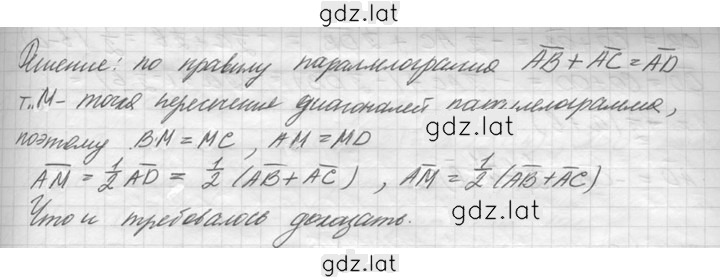 gdz.lat
Решение: по правилу параллелограмма AB + AC = AD
т. M - точка пересечения диагоналей параллелограмма,
поэтому BM = MC, AM = MD
gdz.lat
AM = 1/2 AD = 1/2 (AB + AC), AM = 1/2 (AB + AC)
Что и требовалось доказать.
gdz.lat
gdz.lat